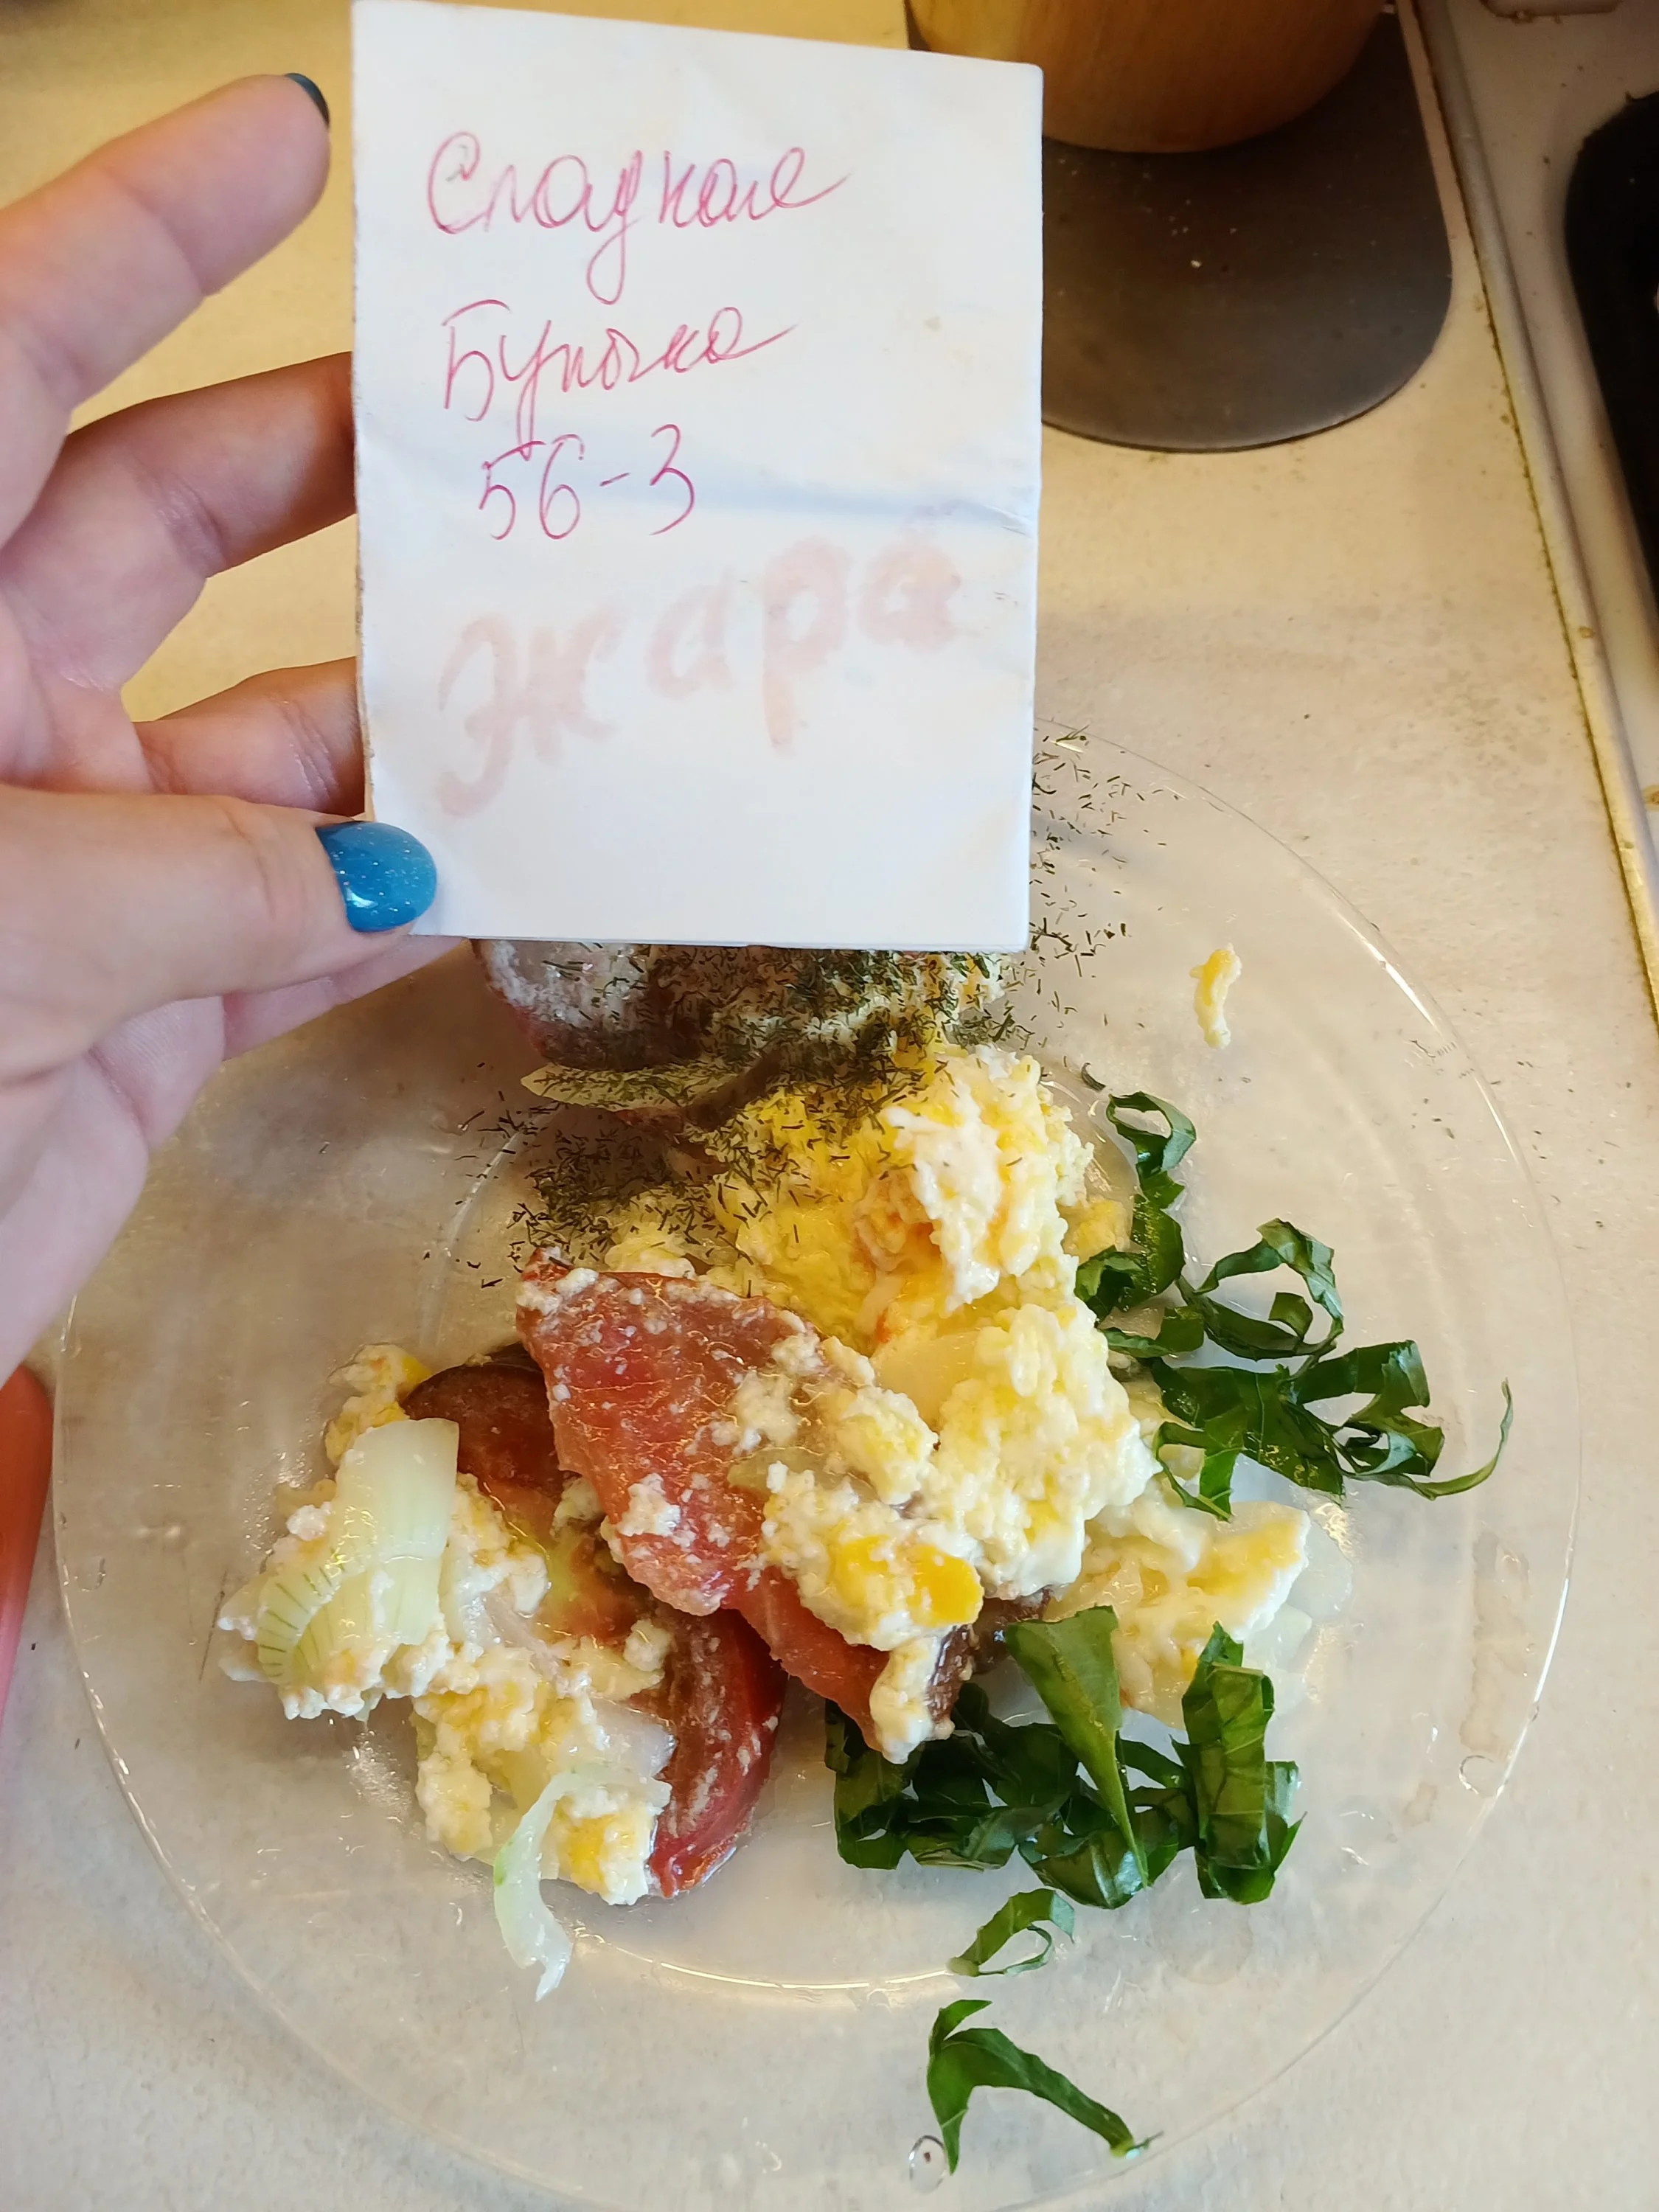 Сладкая
Булочка
56-3
Жара